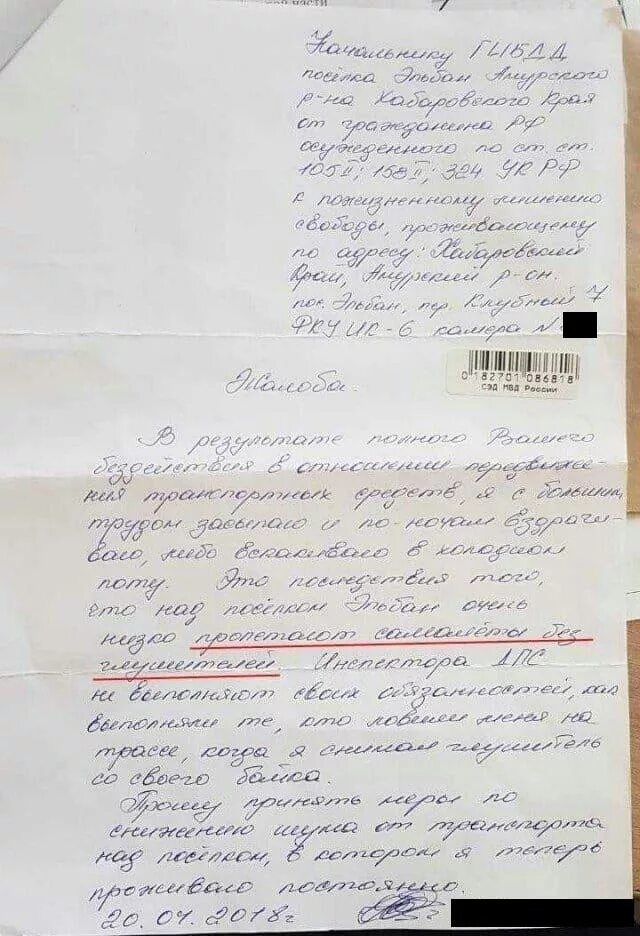 Начальнику ГИБДД
посёлка Эльбан Амурского
р-на Хабаровского Края
от гражданина РФ
осужденного по ст. ст.
105 II; 158 II; 324 УК РФ
к пожизненному лишению
свободы, проживающему
по адресу: Хабаровский
Край, Амурский р-он.
пос. Эльбан, пер. Клубный 7
ФКУ ИК-6 камера №
0 182701 086818
СЭД МВД России
Жалоба.
В результате полного Вашего
бездействия в отношении передвиже-
ния транспортных средств, я с большим
трудом засыпаю и по-ночам вздраги-
ваю, либо вскакиваю в холодном
поту. Это последствия того,
что над посёлком Эльбан очень
низко пролетают самолёты без
глушителей. Инспектора ДПС
не выполняют своих обязанностей, как
выполняли те, кто ловили меня на
трассе, когда я снимал глушитель
со своего байка.
Прошу принять меры по
снижению шума от транспорта
над посёлком, в котором я теперь
проживаю постоянно.
20.04.2018г